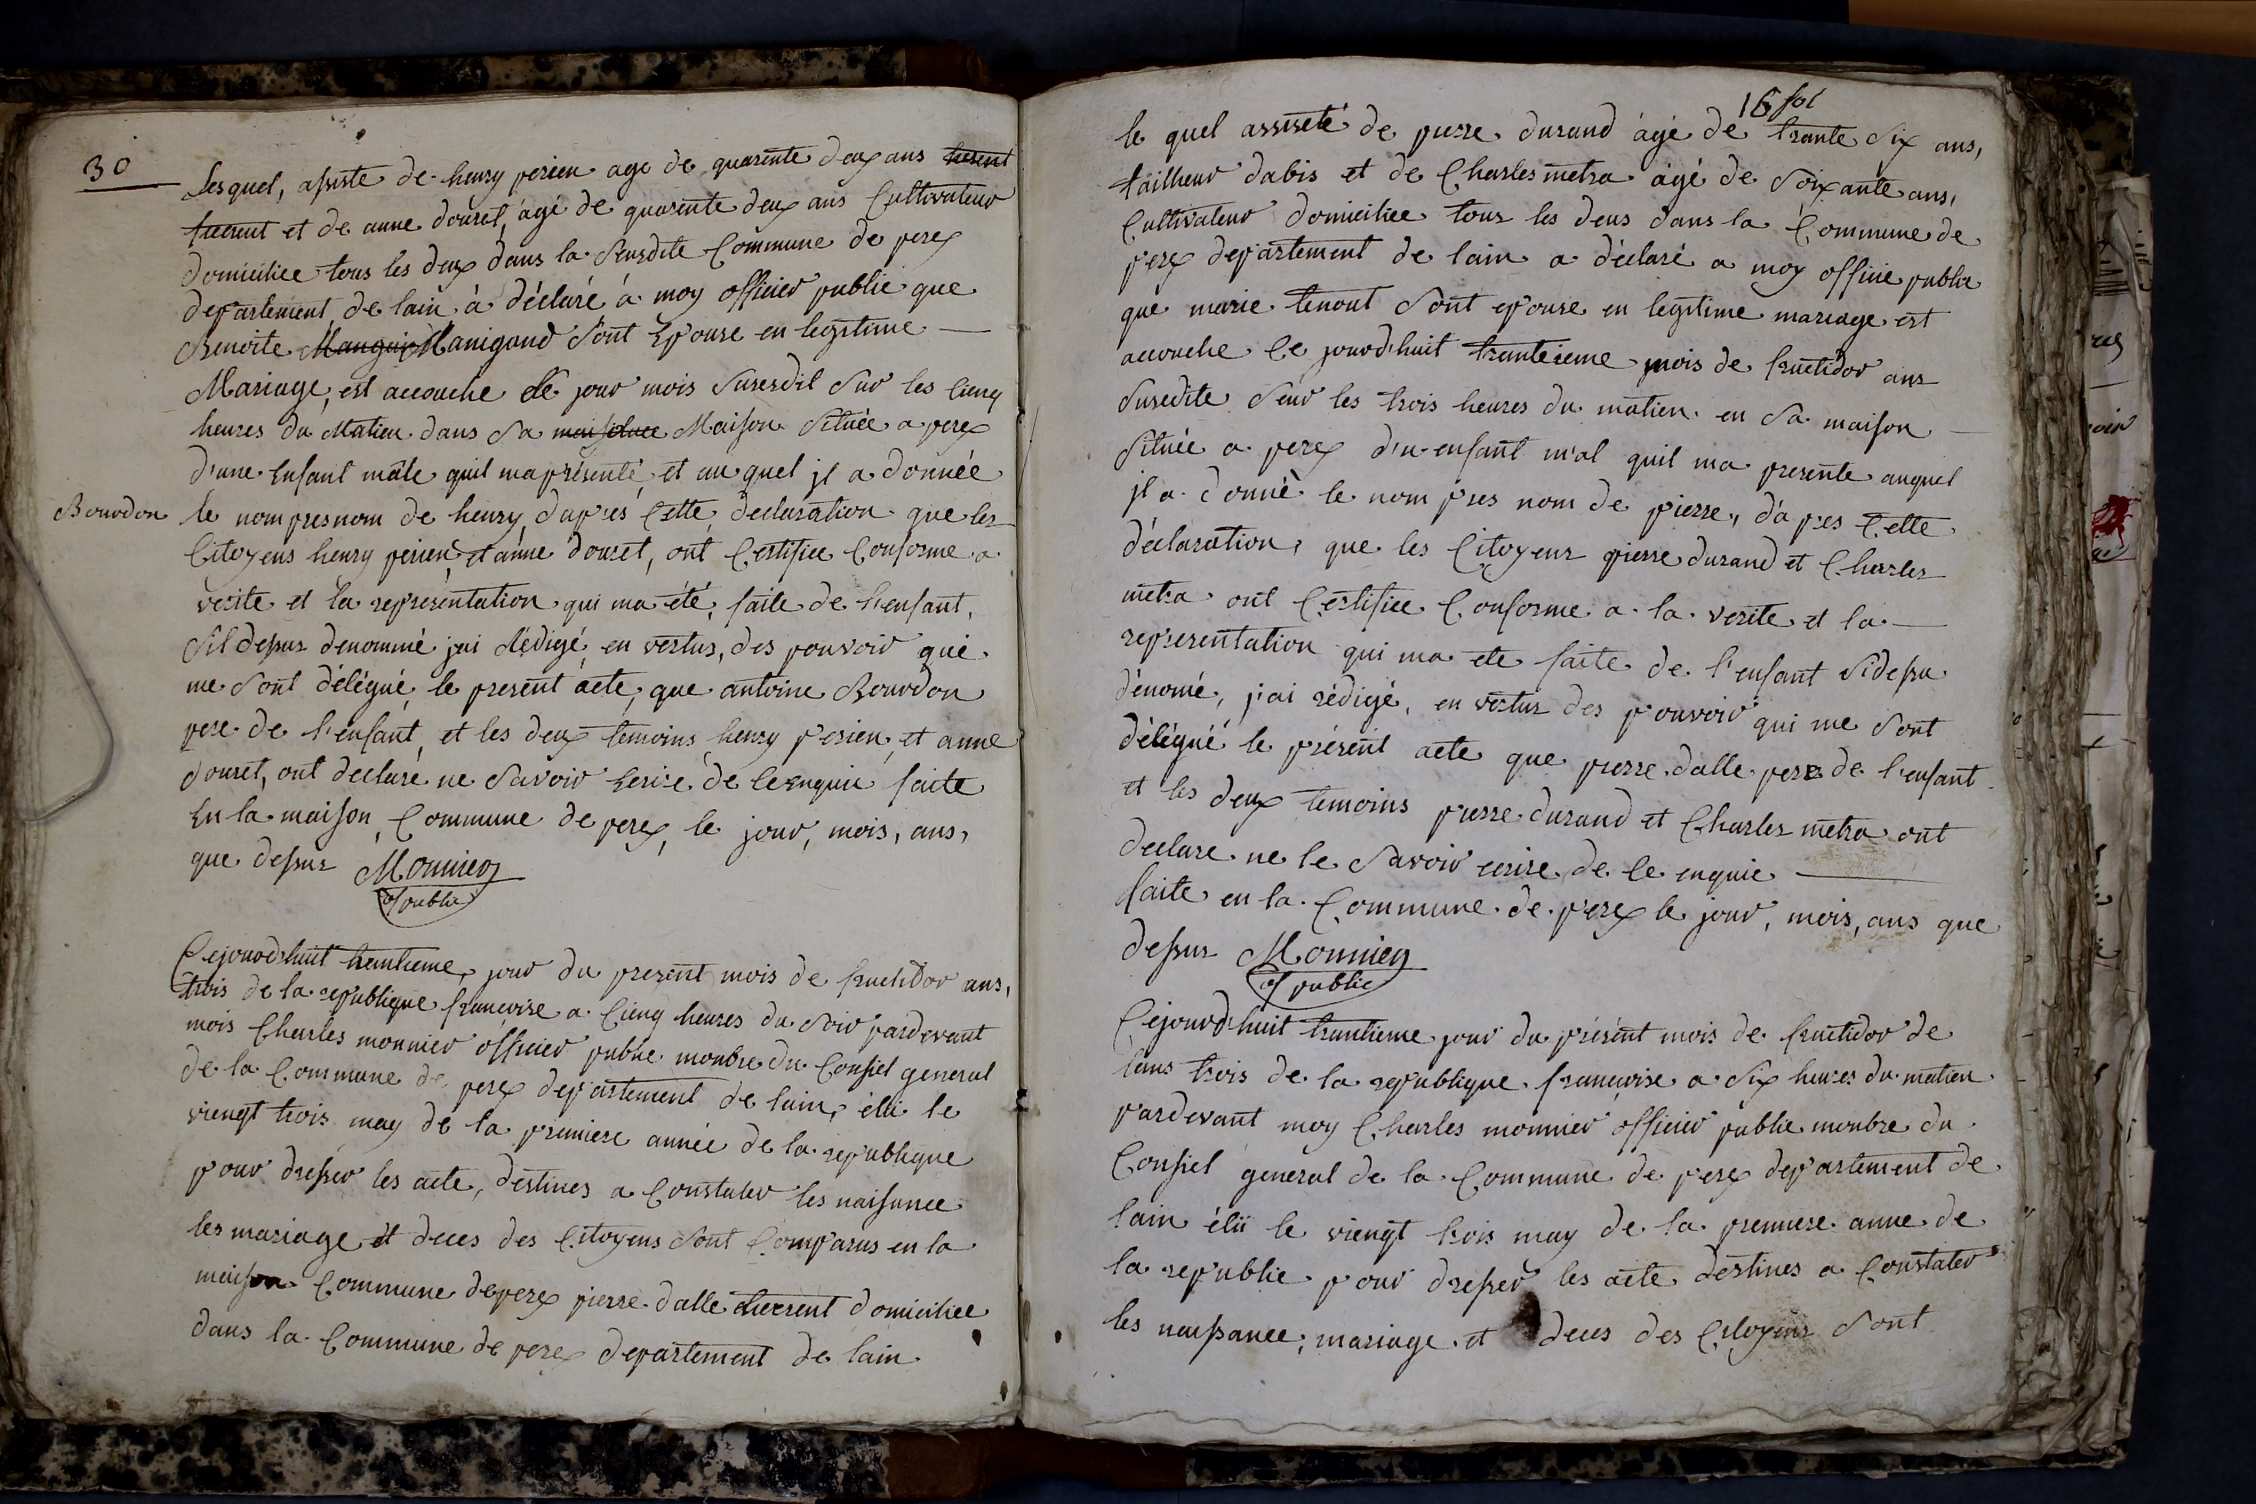 30
Lesquel, assiste de henry perien age de quarente deux ans
et de anne douret, âgé de quarente deux ans Cultivateur
domiciliee tous les deux dans la Seusdite Commune de perex
departement de lain à déclaré à moy officier public que
Benoite Manigand Sont Epouse en legitime
Mariage, est accouche de jour mois Suresdit Sur les Cienq
heures du Matien dans Sa Maison Située a perex
d'une Enfant mâle quil ma présenté et au quel jl a donnée
Bourdon
le nom presnom de henry, dapres Cette, declaration que les
Citoyens henry perien, et anne douret, ont Certifiee Conforme a
verite et la representation qui ma été, faite de l'enfant,
Sil dessus denommé jai rédigé, en vertus, des pouvoir qui
me Sont délégué, le present acte, que antoine Bourdon
pere de l'enfant, et les deux temoins henry perien, et anne
douret, ont declaré ne Savoir Ecrire de ce enquie faite
En la maison, Commune de perex, le jour, mois, ans,
que dessus Monnier
of public
Cejourd'huit trentieme, jour du present mois de fructidor ans,
trois de la republique francoise a Cienq heures du Soir pardevant
mois Charles monnier officier public monbre du Consiel general
de la Commune de perex departement de lain, élii le
viengt trois may de la premiere année de la republique
pour dresser les acte, destines a Constater les naissance
les mariage et deces des Citoyens Sont Comparus en la
maison Commune de perex pierre dalle domiciliee
dans la Commune de perex departement de lain
16 fol
le quel assisté de pierre durand âgé de trante Six ans,
tailheur dabis et de Charles metra âgé de Soixante ans,
Cultivateur domiciliee tous les deus dans la Commune de
perex departement de lain a déclaré a moy officie public
que marie tenout Sont epouse en legitime mariage est
accouche Ce jourd'huit trantieeme mois de fructidor ans
Suredite Seur les trois heures du matien en Sa maison
Située a perex d'n enfant m'al quil ma presente auquel
jl a donné le nom pres nom de pierre, dá pres Cette
déclaration, que les Citoyens pierre durand et Charles
metra ont Certifiee Conforme a la verite et la
representation qui ma ete faite de l'enfant Sidessu
dénomé, jai rédigé, en vertus des pouvoir qui me Sont
délégué le présent acte que pierre dalle pere de l'enfant
et les deux temoins pierre durand et Charles metra ont
declare ne le Savoir ecrire de ce enquie
faite en la Commune de perex le jour, mois, ans que
dessus Monnier
of public
Cejourd'huit trantieme jour du présent mois de fructidor de
lans trois de la republique francoise a Six heures du matien
pardevant moy Charles monnier officier public monbre du
Consiel general de la Commune de perex departement de
lain élii le viengt trois may de la premiere anne de
la republie pour dresser les acte destines a Constater
les naissance, mariage et deces des Citoyens Sont